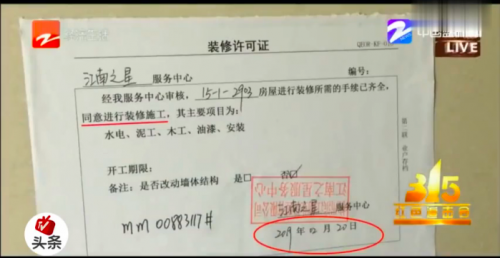 装修许可证
江南之星 服务中心
经我服务中心审核，15-1-2903房屋进行装修所需的手续已齐全，
同意进行装修施工，其主要项目为：
水电、泥工、木工、油漆、安装
开工期限：
备注：是否改动墙体结构 是口 否
江南之星服务中心
江南之星 服务中心
2019年12月20日
mm 00883117#
LIVE
315
头条